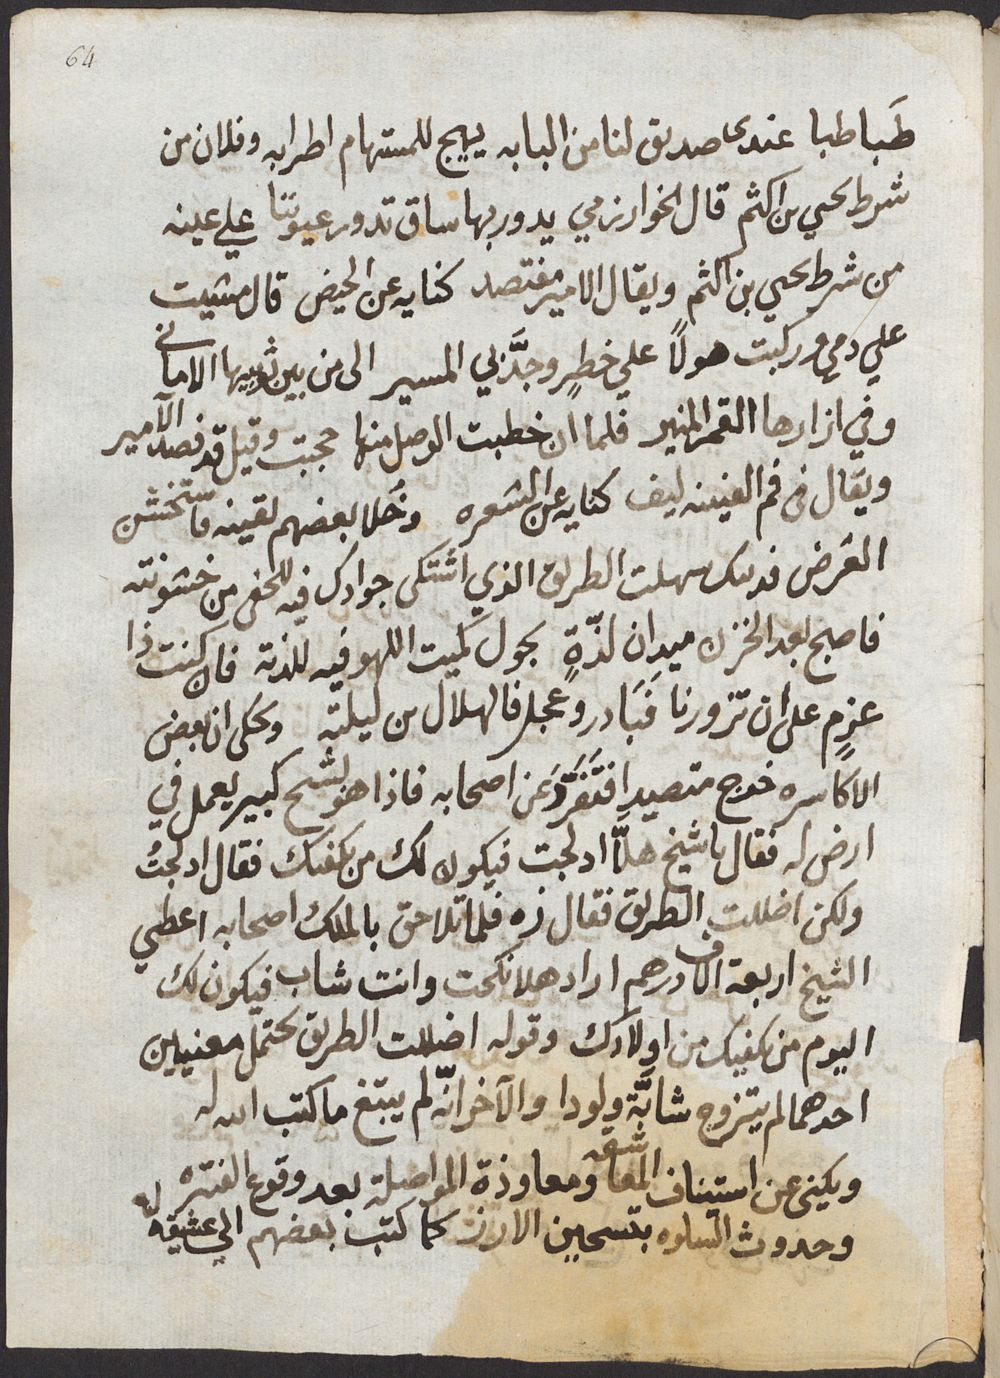 64
طَباطبا عندى صديق لنا من البابه يهيج للمستهام اطرابه وفلان من
شرط يحيي بن اكثم قال الخوارزمي يدور بها ساق تدور عيوننا علي عينه
من شرط يحيي بن اكثم ويقال الامير مفتصد كنايه عن الحيض قال مشيت
علي دمي وركبت هولاً علي خطرٍ وجدَّ بي المسير الى من بين ثوبيها الاماني
وفي ازارها القمر المنير فلما ان خطبت الوصل منها حجبت وقيل قد فصد الامير
ويقال فى فم القنينه ليف كنايه عن الشعره وخَلا بعضهم بقينه فاستخشن
العَرض فدتك سهلت الطريق الذي اشتكى جوادك فيه للحفى من خشونته
فاصبح بعد الحزن ميدان لذّةٍ يجول كميت اللهو فيه للذته فان كنت ذا
عزمٍ على ان تزورنا فبَادر وعجل فالهلال من ليلته وحكى ان بعض
الاكاسره خرج متصيدا فتَفَرَّدَ عن اصحابه فاذا هو بشيخ كبير يعمل في
ارض له فقال يا شيخ هلاّ ادلجت فيكون لك من يكفيك فقال ادلجتُ
ولكن اضللت الطريق فقال زه فلما تلاحق بالملك اصحابه اعطي
الشيخ اربعة الاف درهم اراد هلا نكحت وانت شاب فيكون لك
اليوم من يكفيك من اولادك وقوله اضللت الطريق يحتمل معنيين
احدهما لم يتزوج شابَّة ولودا والآخر انّه لم يبتغ ما كتب الله له
ويكنى عن استيناف المعاشقه ومعاوذة المواصلة بعد وقوع الفتره
وحدوث السلوه بتسخين الارز كما كتب بعضهم الي عشيقه له